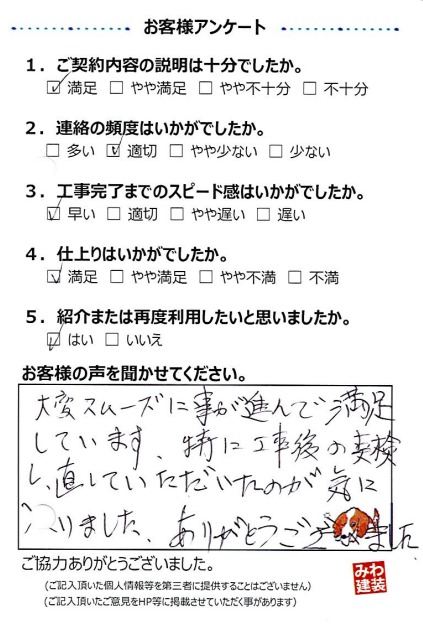 お客様アンケート
1．ご契約内容の説明は十分でしたか。
☑ 満足 □ やや満足 □ やや不十分 □ 不十分
2．連絡の頻度はいかがでしたか。
□ 多い ☑ 適切 □ やや少ない □ 少ない
3．工事完了までのスピード感はいかがでしたか。
☑ 早い □ 適切 □ やや遅い □ 遅い
4．仕上りはいかがでしたか。
☑ 満足 □ やや満足 □ やや不満 □ 不満
5．紹介または再度利用したいと思いましたか。
☑ はい □ いいえ
お客様の声を聞かせてください。
大変スムーズに事が進んで満足
しています、特に工事後の
し、直していただいたのが気に
入りました、ありがとうございました
ご協力ありがとうございました。
(ご記入頂いた個人情報等を第三者に提供することはございません)
(ご記入頂いたご意見をHP等に掲載させていただく事があります)
みわ
建装